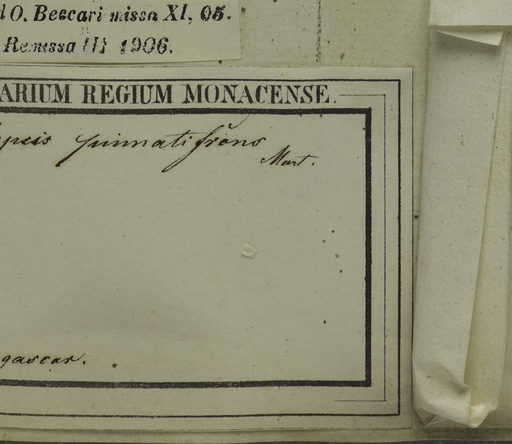 d O. Beccari missa XI, 05.
Remissa III 1906.
ARIUM REGIUM MONACENSE.
ypsis pinnatifrons
Mart.
gascar.